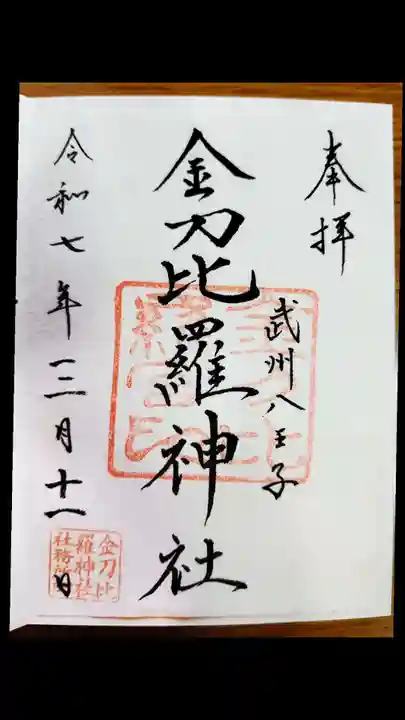 奉拝
武州八王子
金刀比羅神社
令和七年一二月十一日
金刀比
羅神社
社務所